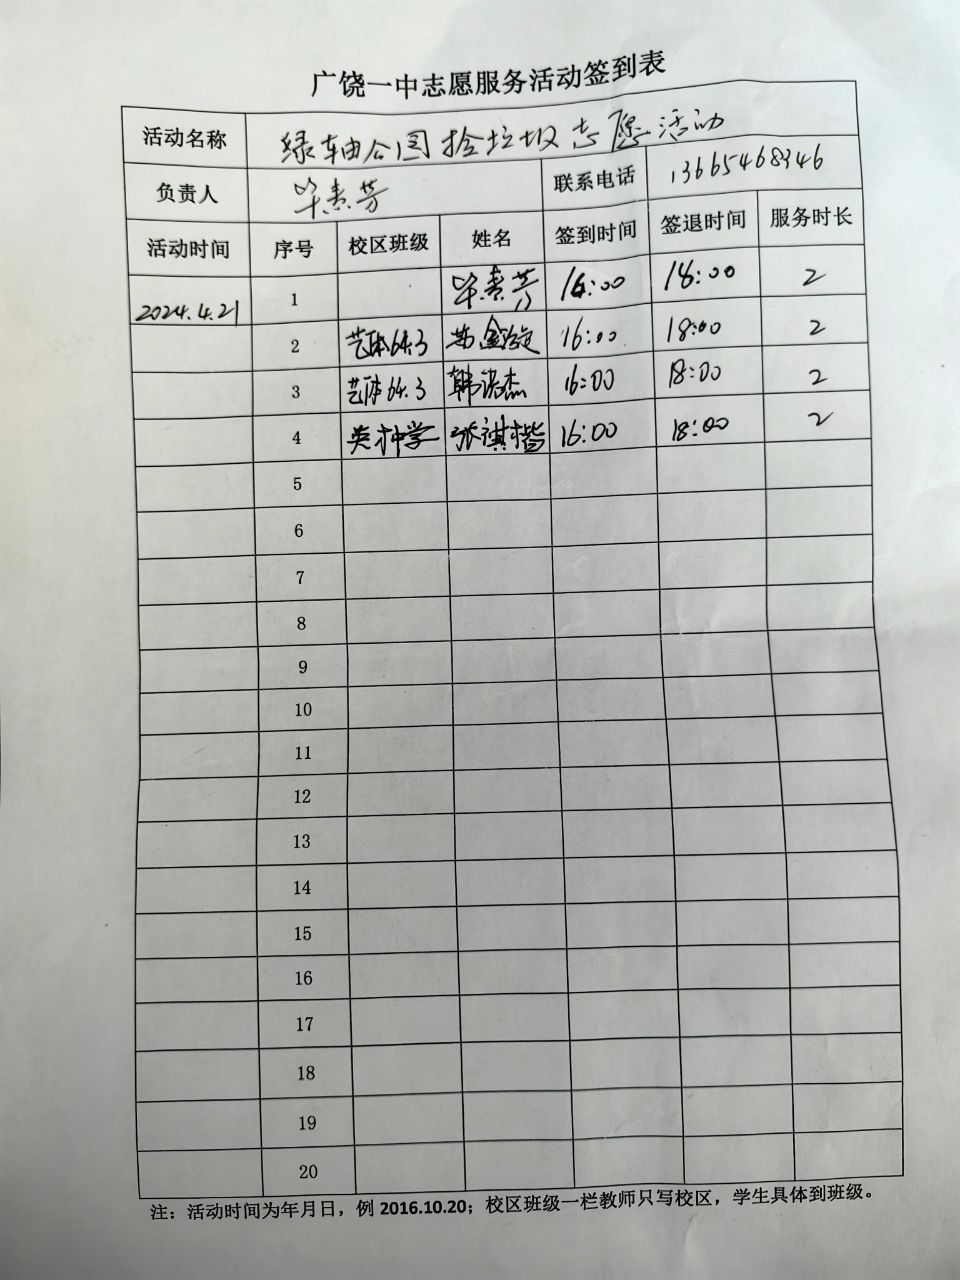 广饶一中志愿服务活动签到表
活动名称 绿轴公园捡垃圾志愿活动
负责人 毕素芳 联系电话 13665468346
活动时间 序号 校区班级 姓名 签到时间 签退时间 服务时长
2024.4.21 1 毕素芳 16:00 18:00 2
2 艺体64.3 16:00 18:00 2
3 艺体64.3 韩浩杰 16:00 18:00 2
4 英才中学 张祺楷 16:00 18:00 2
5
6
7
8
9
10
11
12
13
14
15
16
17
18
19
20
注：活动时间为年月日，例 2016.10.20；校区班级一栏教师只写校区，学生具体到班级。